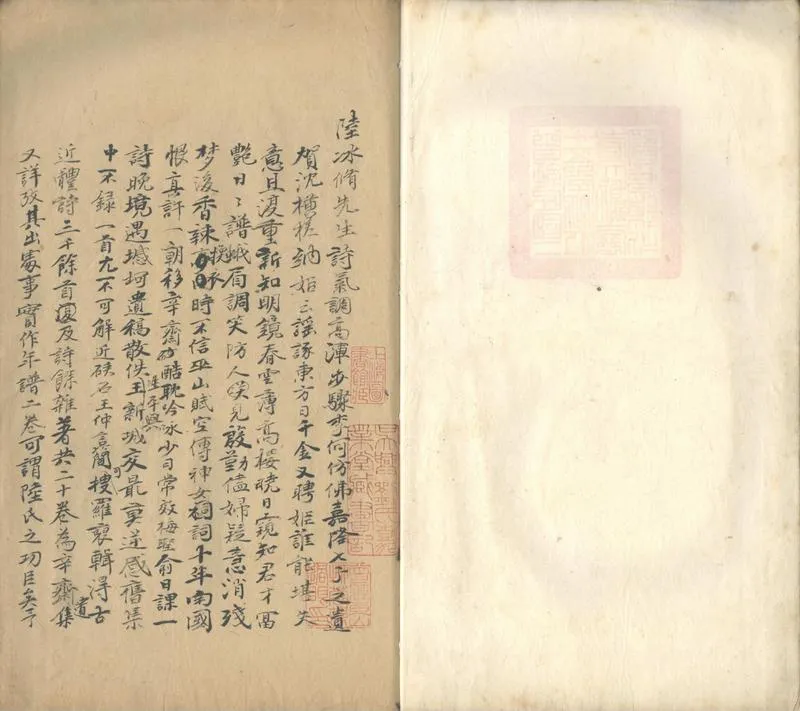 陸冰脩先生詩氣調高渾步驟李何仿佛嘉隆七子之遺
賀沈橫槎納姬云謠諑東方日千金又聘姬誰能堪失
意且復重新知明鏡春雲薄高樓曉日窺知君才富
艷日〻譜蛾眉調笑防人見殷勤儘婦疑意消殘
梦後香辣捩脉時不信巫山賦空傳神女祠詞十年南國
恨真許一朝移辛齋酷耽吟咏少日常效梅聖俞日課一
詩晚境遇墈坷遺稿散佚王新城交最莫逆感舊集
中不錄一首尤不可解近硤石王仲言簡搜羅裒輯得古
近體詩三千餘首回及詩餘雜著共二十卷為辛齋遺集
又詳攷其出處事實作年譜二卷可謂陸氏之功臣矣予